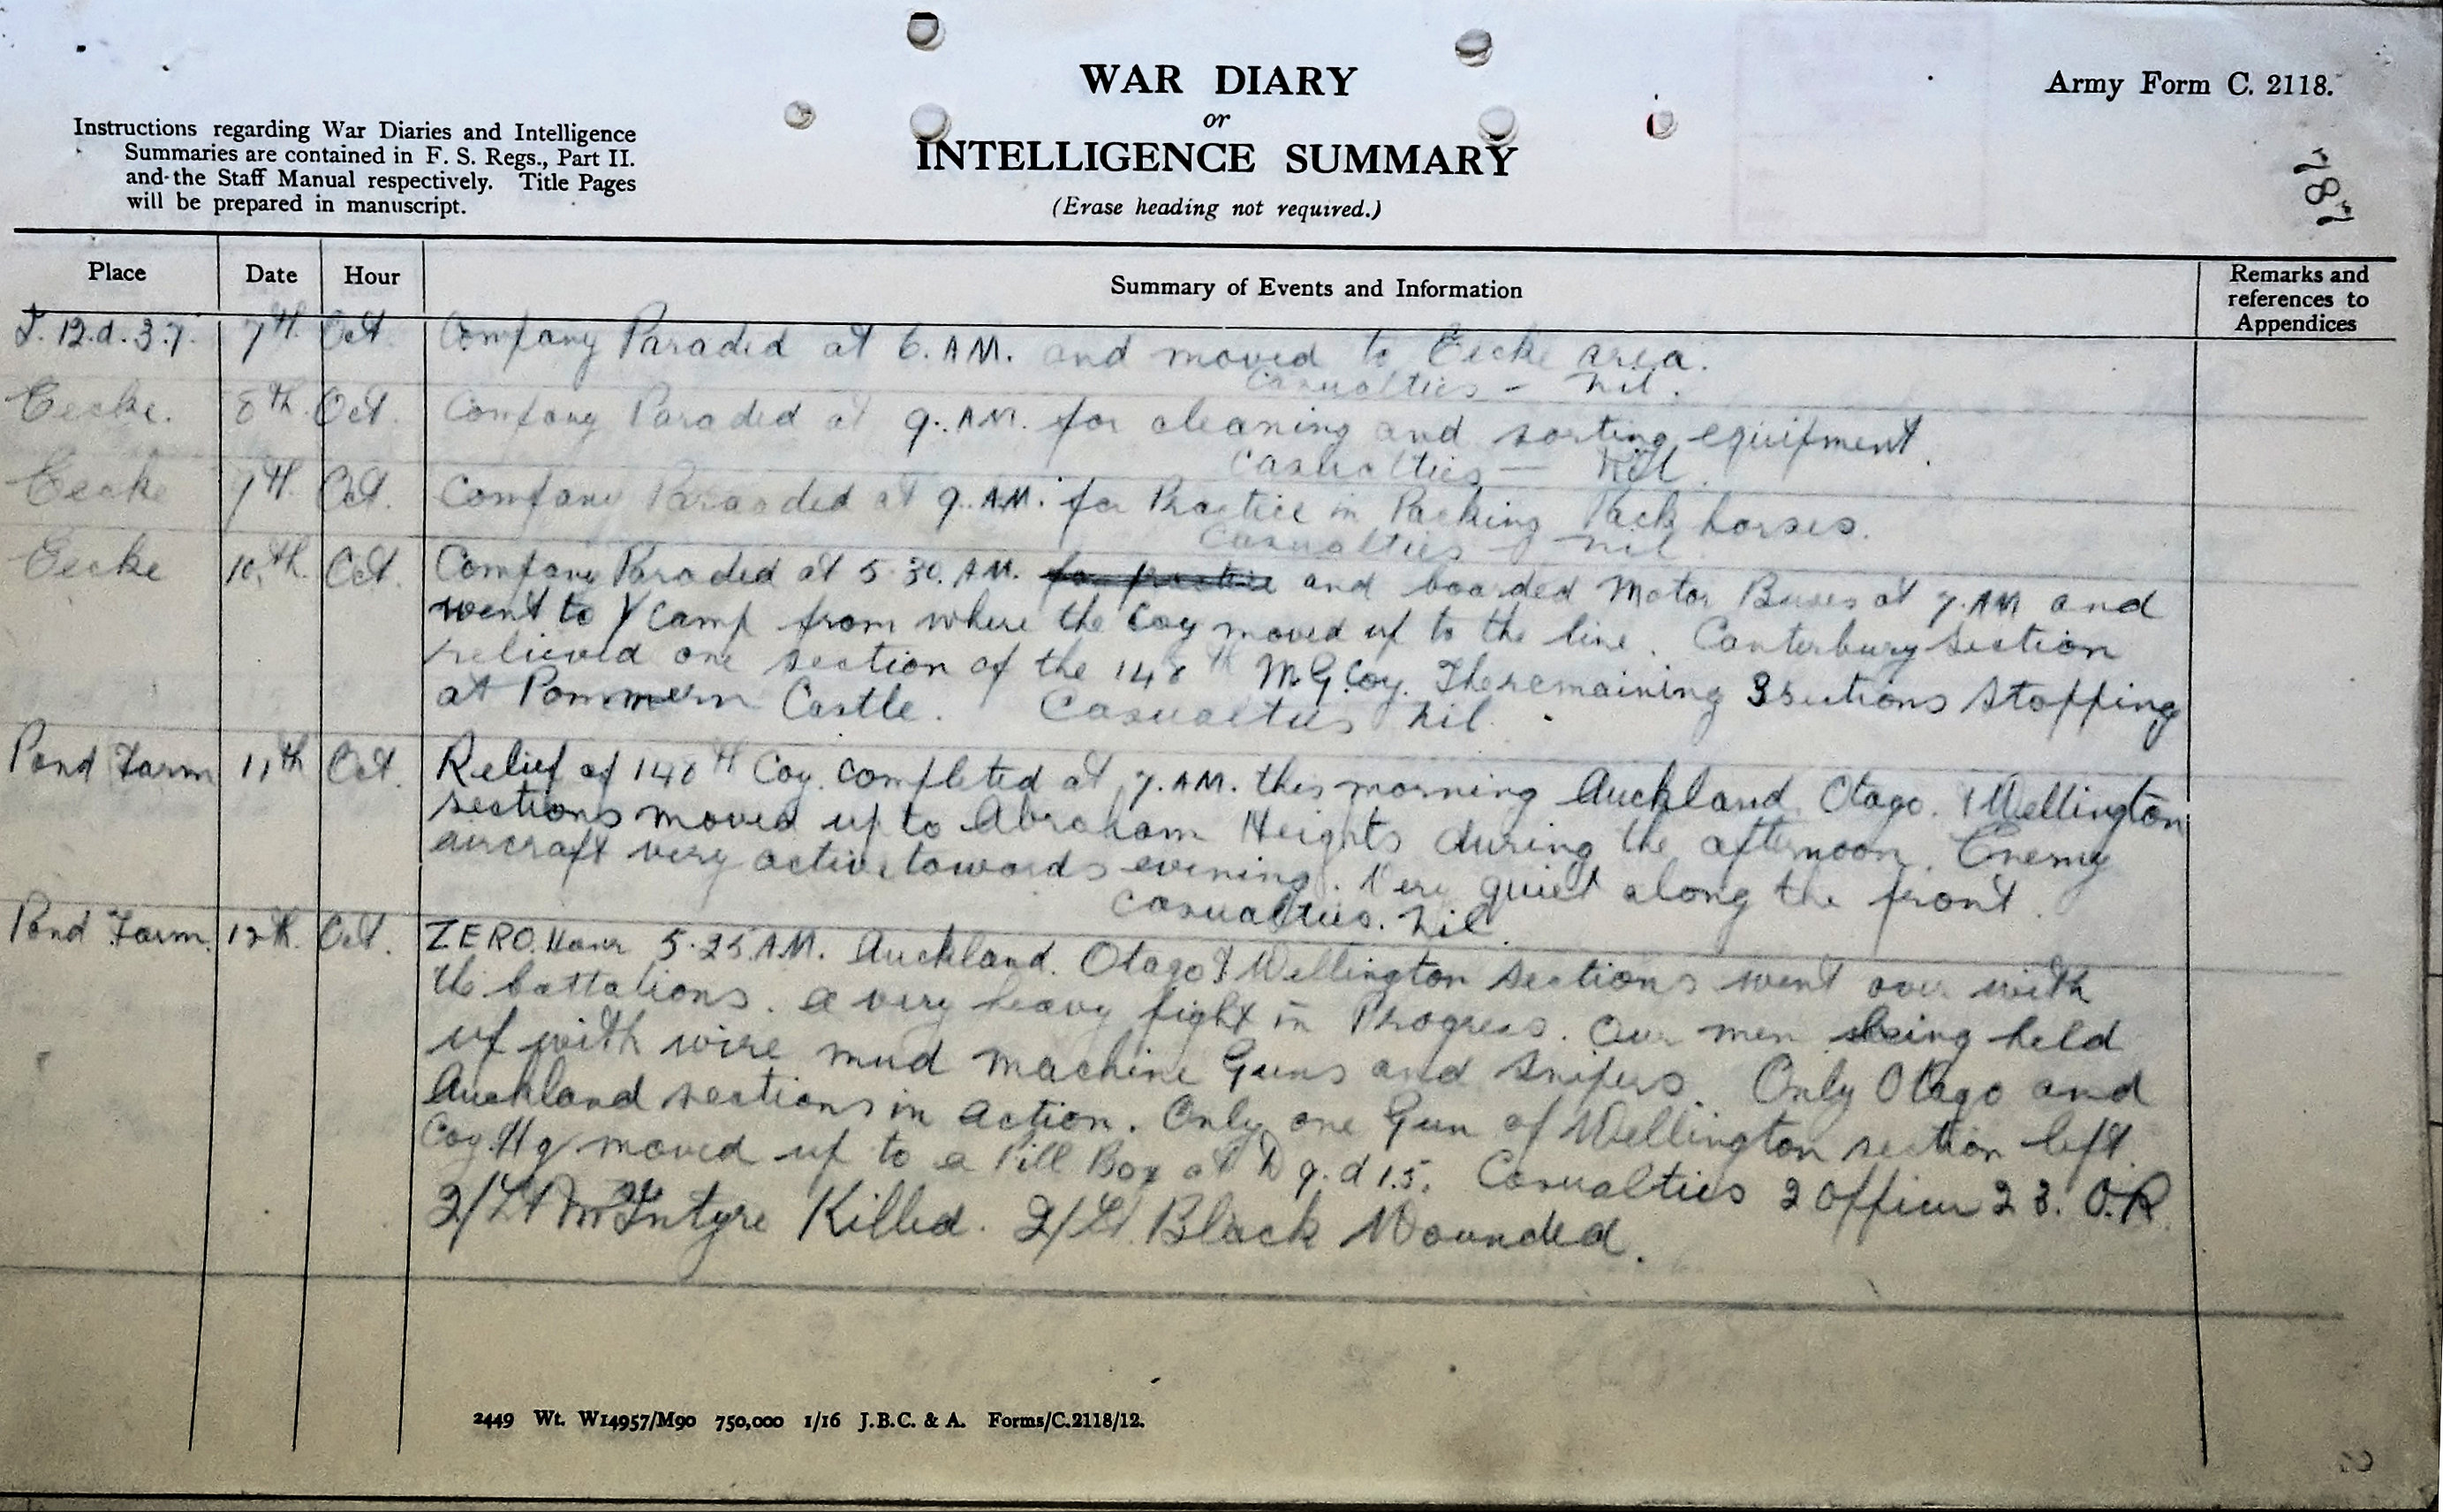 WAR DIARY
or
INTELLIGENCE SUMMARY
(Erase heading not required.)
Army Form C. 2118.
Instructions regarding War Diaries and Intelligence
Summaries are contained in F. S. Regs., Part II.
and the Staff Manual respectively. Title Pages
will be prepared in manuscript.
Place Date Hour Summary of Events and Information Remarks and
references to
Appendices
12.d.3.7. 7th Oct Company Paraded at 6. AM. and moved to Eecke area.
Casualties - nil.
Eecke. 8th Oct. Company Paraded at 9. AM. for cleaning and sorting equipment.
Casualties — Nil.
Eecke Oct. Company Paraded at 9. AM. for Practice in Packing Pack horses.
Casualties - nil
Eecke 10th Oct. Company Paraded at 5.30. AM. for practice and boarded Motor Buses at 7. AM and
went to Y Camp from where the Coy moved up to the line. Canterbury section
relieved one section of the 148th M.G. Coy. The remaining 3 sections stopping
at Pommern Castle. Casualties nil.
Pond Farm 11th Oct. Relief of 148th Coy. completed at 7. AM. this morning Auckland. Otago. & Wellington
sections moved up to Abraham Heights during the afternoon. Enemy
aircraft very active towards evening. Very quiet along the front.
Casualties. nil.
Pond Farm. 12th. Oct. ZERO. Hour 5.25. A.M. Auckland. Otago & Wellington sections went over with
the battalions. a very heavy fight in Progress. Our men being held
up with wire mud machine Guns and snipers. Only Otago and
Auckland sections in action. Only one Gun of Wellington section left.
Coy. Hq moved up to a Pill Box at D 9. d 1.5. Casualties 2 Officer 23. O.R.
2/Lt McIntyre Killed. 2/Lt. Black Wounded.
2449 Wt. W14957/M90 750,000 1/16 J.B.C. & A. Forms/C.2118/12.